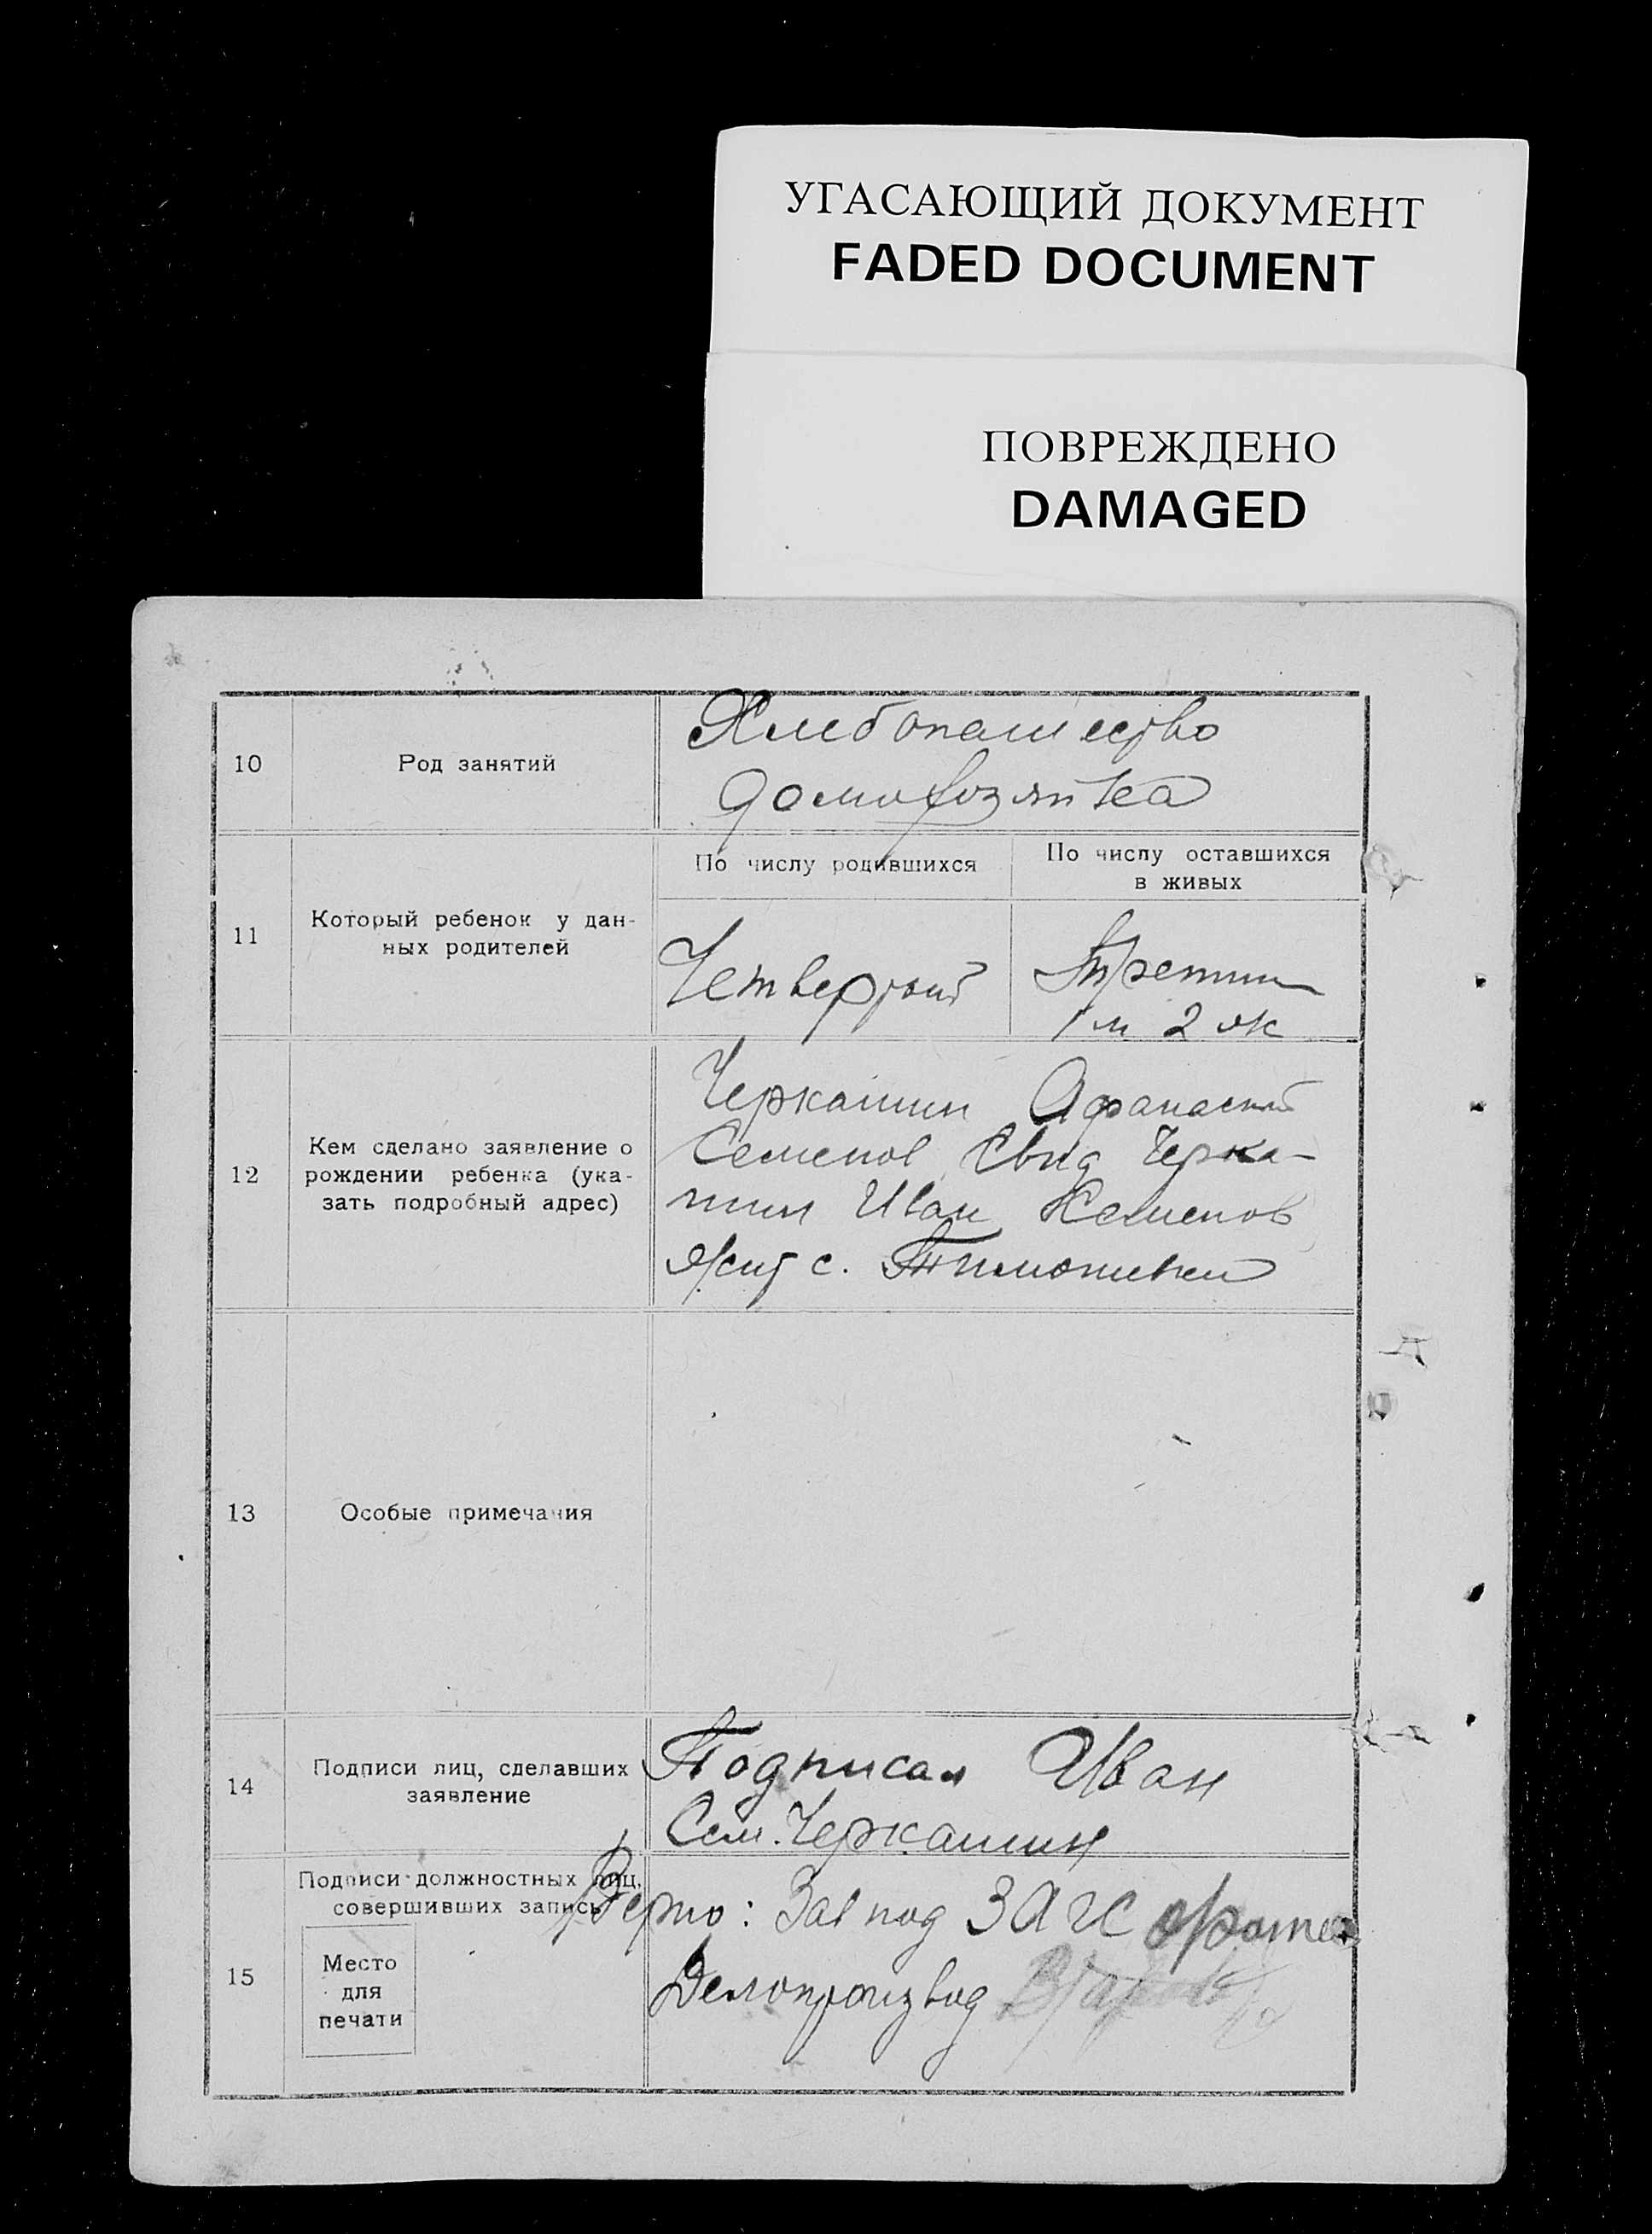 УГАСАЮЩИЙ ДОКУМЕНТ
FADED DOCUMENT
ПОВРЕЖДЕНО
DAMAGED
10
Род занятий
Хлебопашество
домохозяйка
11
Который ребенок у дан-
ных родителей
По числу родившихся
По числу оставшихся
в живых
Четвертый
Третий
1 м 2 ж
12
Кем сделано заявление о
рождении ребенка (ука-
зать подробный адрес)
Черкашин Афанасий
Семенов Свид Черка-
шин Иван Семенов
Жит с.
13
Особые примечания
14
Подписи лиц, сделавших
заявление
Подписал Иван
Сем. Черкашин
15
Подписи должностных лиц,
совершивших запись
Место
для
печати
Верно: Зав под ЗАГС
Делопроизвод